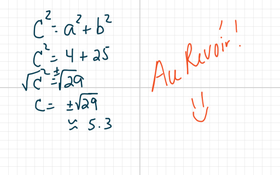 C² = a² + b²
C² = 4 + 25
√C² = ±√29
C = ±√29
≈ 5.3
Au Revoir!